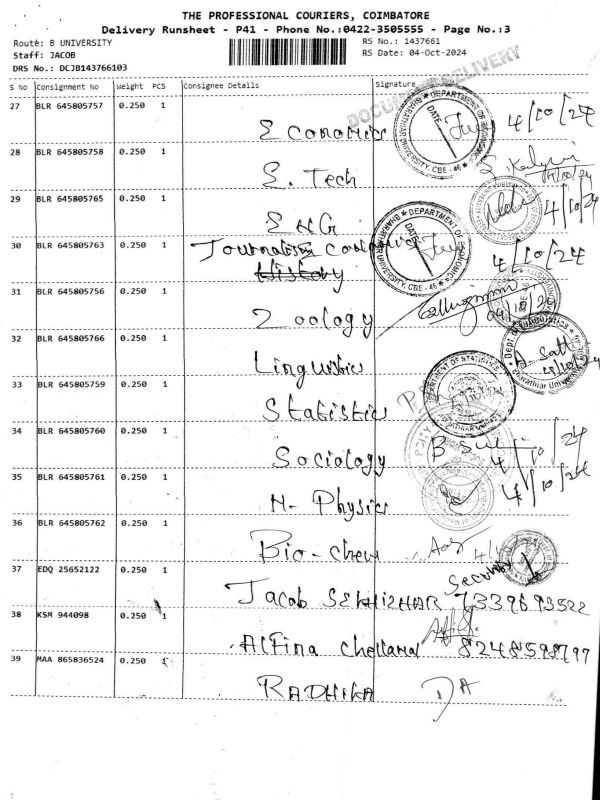 THE PROFESSIONAL COURIERS, COIMBATORE
Delivery Runsheet - P41 - Phone No.:0422-3505555 - Page No.:3
Route: B UNIVERSITY
RS No.: 1437661
Staff: JACOB
RS Date: 04-Oct-2024
DRS No.: DCJB143766103
S No Consignment No Weight PCS Consignee Details Signature
27 BLR 645805757 0.250 1
Economics 4/10/24
28 BLR 645805758 0.250 1
E. Tech
29 BLR 645805765 0.250 1
ENG 4/10/24
30 BLR 645805763 0.250 1
Journalism
History 4/10/24
31 BLR 645805756 0.250 1
Zoology 04/10/24
32 BLR 645805766 0.250 1
Linguistics
33 BLR 645805759 0.250 1
Statistics
34 BLR 645805760 0.250 1
Sociology 4/10/24
35 BLR 645805761 0.250 1
N- Physics 4/10/24
36 BLR 645805762 0.250 1
Bio-chem
37 EDQ 25652122 0.250 1
Security
Jacob
38 KSM 944098 0.250 1
Alfina
39 MAA 865836524 0.250 1
RADHIKA